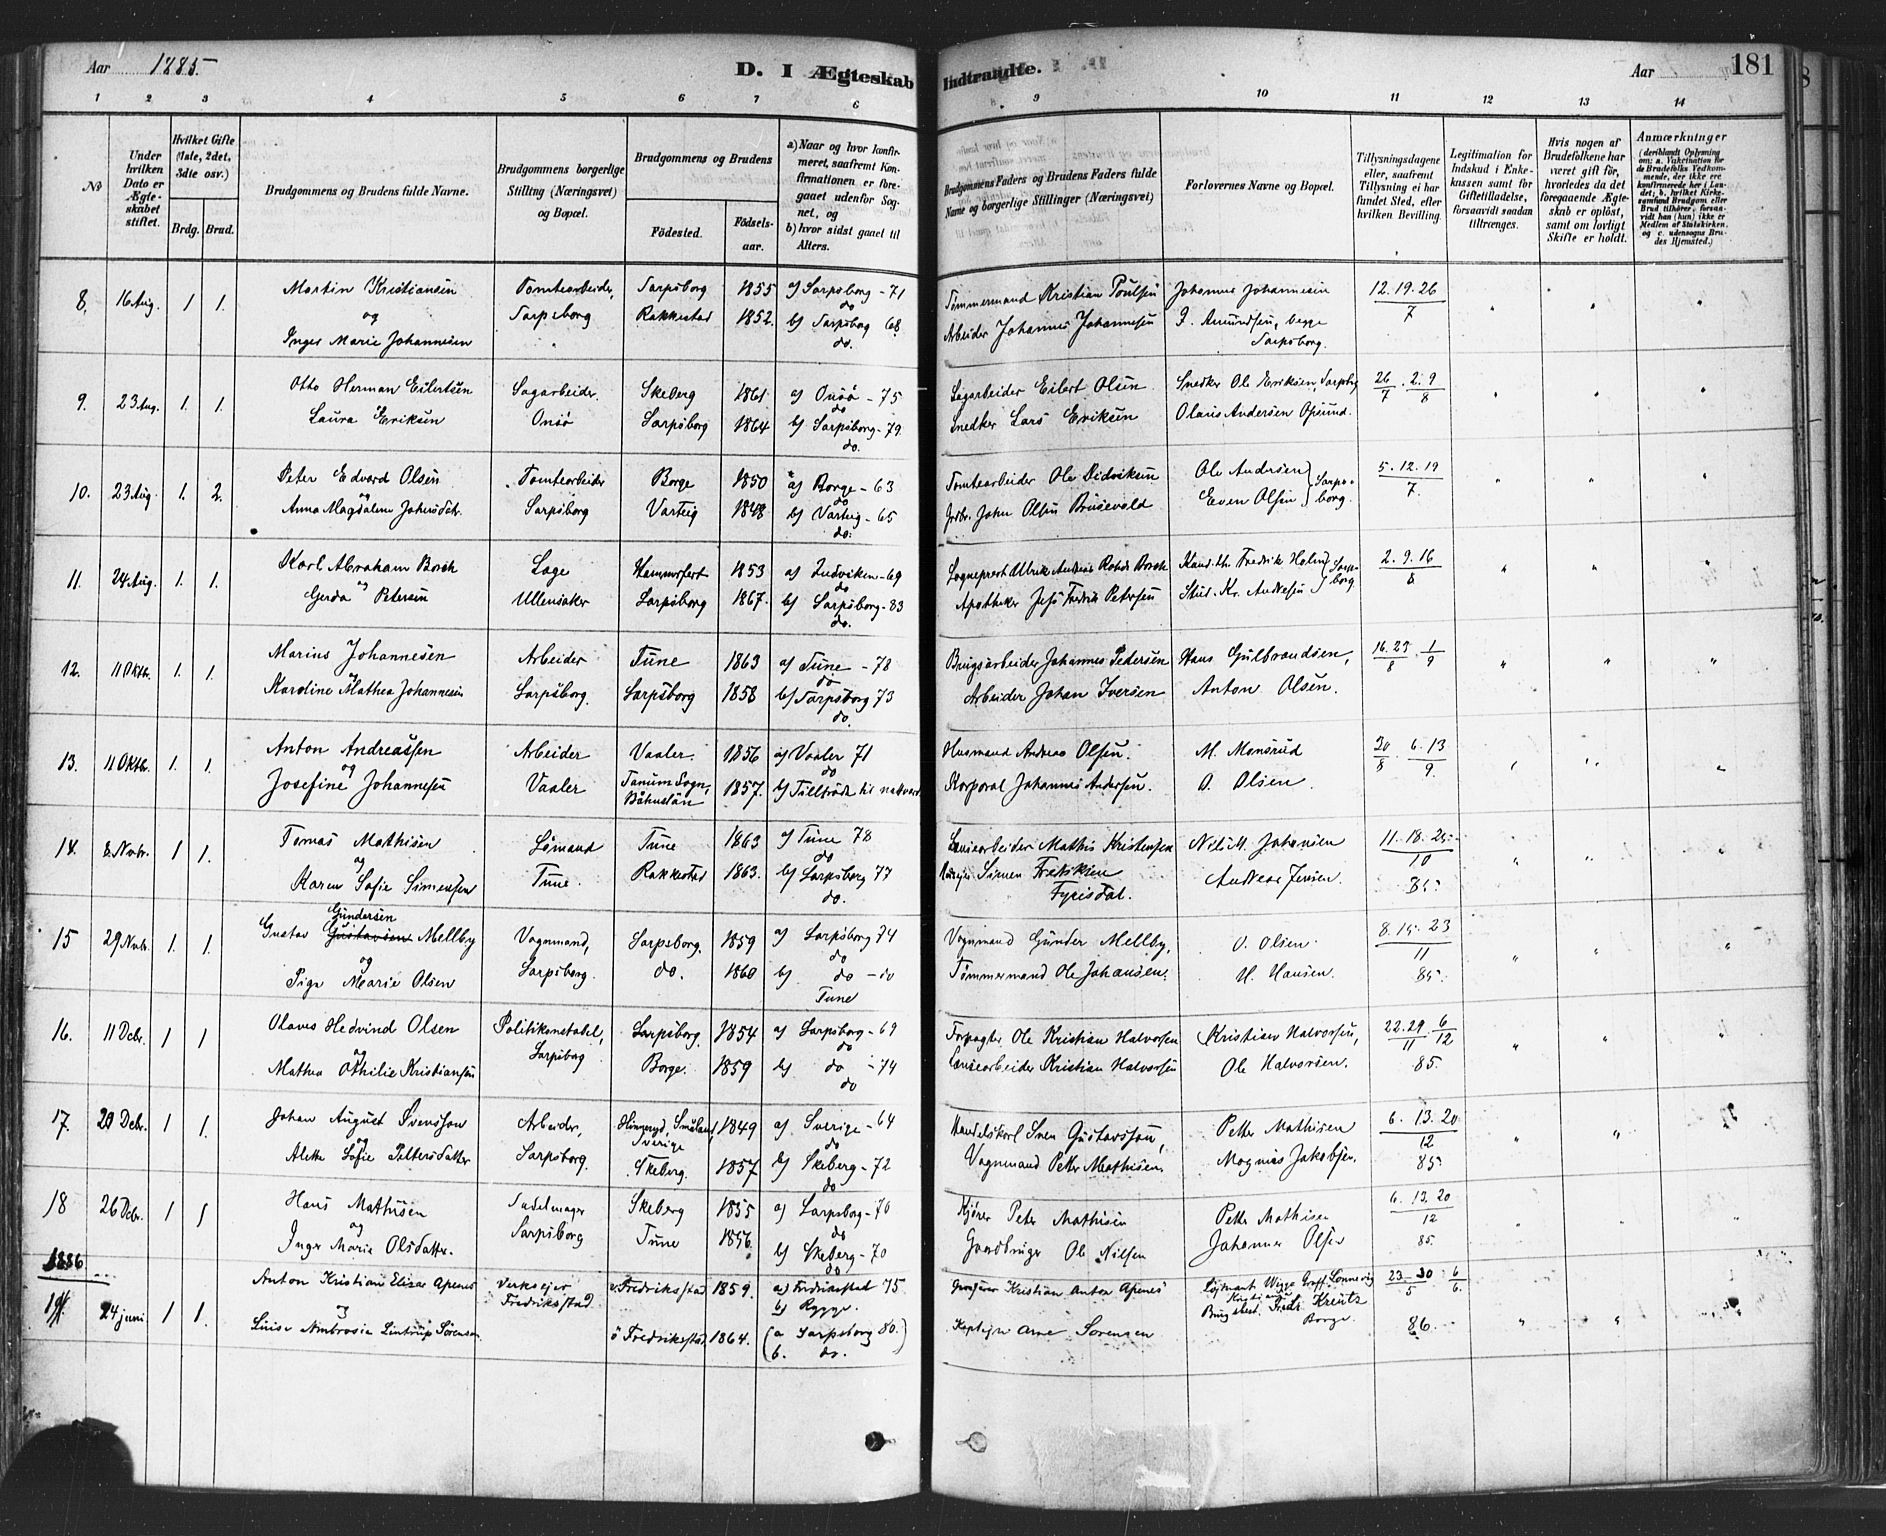 Aar 1885.
D. I Ægteskab Indtraadte.
Aar 181
1 2 3 4 5 6 7 8 9 10 11 12 13 14
No
Under hvilken Dato er Ægteskabet stiftet.
Hvilket Gifte (1ste, 2det, 3die osv.)
Brdg. Brud.
Brudgommens og Brudens fulde Navne.
Brudgommens borgerlige Stilling (Næringsvei) og Bopæl.
Brudgommens og Brudens
Födested.
Födselsaar.
a) Naar og hvor konfirmeret, saafremt Konfirmationen er foregaaet udenfor Sognet, og
b) hvor sidst gaaet til Alters.
Brudgommens Faders og Brudens Faders fulde Navne og borgerlige Stillinger (Næringsvei)
Forlovernes Navne og Bopæl.
Tillysningsdagene eller, saafremt Tillysning ei har fundet Sted, efter hvilken Bevilling.
Legitimation for Indskud i Enkekassen samt for Giftetilladelse, forsaavidt saadan tiltrænges.
Hvis nogen af Brudefolkene har været gift för, hvorledes da det foregaaende Ægteskab er oplöst, samt om lovligt Skifte er holdt.
Anmærkninger
8. 16 Aug. 1 1. Martin Kristiansen Tomtearbeider, Sarpsborg 1855 a) Sarpsborg - 71 Tömmermand Kristian Poulsen Johannes Johannesen 12. 19. 26
og Sarpsborg Rakkestad 1852. b) Sarpsborg 68 Arbeider Johannes Johannesen P. Amundsen, begge 7
Inger Marie Johannesen do. Sarpsborg.
9. 23 Aug. 1. 1. Otto Herman Eilertsen Sagarbeider. Skeberg 1861 a) Onsö - 75 Sagarbeider Eilert Olsen Snedker Ole Eriksen, Sarpsbg 26/7 . 2. 9/8
Laura Eriksen Onsö Sarpsborg 1864 b) Sarpsborg - 79 Snedker Lars Eriksen Olaus Andersen Opsund.
do.
10. 23 Aug. 1. 2. Peter Edvard Olsen Tomtearbeider Borge 1850 a) Borge - 63 Tomtearbeider Ole Didriksen Ole Andersen 5. 12. 19
og Sarpsborg Varteig 1848 b) Varteig - 65 John Olsen Even Olsen Sarpsborg. 7.
Anna Magdalene Johnsdtr. do.
11. 24 Aug. 1. 1. Karl Abraham Borch Læge Hammerfest 1853 a) - 69 Sogneprest Ulrik Andreas Borch Kand. th. Fredrik Holm 2. 9. 16
og Ullensaker Sarpsborg 1867. b) Sarpsborg - 83 Apotheker Jess Fredrik Petersen Stud. Kr. Andresen Sarpsborg 8
Gerda Petersen do.
12. 11 Oktb. 1. 1. Marius Johannesen Arbeider Tune 1863 a) Tune - 78 Brugsarbeider Johannes Pedersen Hans Gulbrandsen, 16. 23/8 . 1/9
og Sarpsborg. Sarpsborg 1858 b) Sarpsborg 73 Arbeider Johan Iversen Anton Olsen.
Karoline Mathea Johannesen do.
13. 11 Oktb. 1. 1. Anton Andreassen Arbeider Vaaler. 1856 a) Vaaler 71 Husmand Andreas Olsen. M. Monsrud 30/8 . 6. 13/9.
og Vaaler Tanum Sogn, Båhuslän 1857. b) Korporal Johannes Andersen. O. Olsen.
Josefine Johannesen
14. 8. Novbr. 1 1. Tomas Mathisen Sömand Tune 1863 a) Tune 78 Mathis Kristensen Nils M. Johansen 11. 18. 25
og Tune. Rakkestad 1863. b) Sarpsborg 77 Simen Andreas Jensen. 10
Karen Sofie Simensen do. 85.
15 29 Novb. 1. 1. Gustav Gundersen Gustavsen Mellby Vognmand, Sarpsborg. 1859 a) Sarpsborg 74 Vognmand Gunder Mellby, O. Olsen. 8. 15. 23
og Sarpsborg. do. 1860 b) do - do Tömmermand Ole Johansen. H. Hansen. 11
Marie Olsen Tune 85.
16. 11 Decbr. 1 1 Olaves Hedvind Olsen Politikonstabel, Sarpsborg. 1854 a) Sarpsborg - 69 Forpagter Ole Kristian Halvorsen Kristian Halvorsen, 22. 29/11 6/12
og Sarpsborg Borge. 1859 b) do - 74 Kristian Halvorsen Ole Halvorsen. 85.
Mathea Othilie Kristiansen do
17. 20 Decbr. 1 1. Johan August Svensson Arbeider, Småland, Sverige 1849 a) Sverige - 64 Handelskarl Sven Gustavsson, Petter Mathisen 6. 13. 20
og Sarpsborg. Skeberg. 1857 b) Skeberg - 72 Vognmand Petter Mathisen, Magnus Jakobsen. 12
Alette Sofie Pettersdatter do 85.
18 26 Decbr. 1 1 Hans Mathisen Sadelmager Skeberg 1835 a) Sarpsborg - 70 Kjörer Peter Mathisen Petter Mathisen 6. 13. 20
og Sarpsborg Tune 1856. b) Skeberg - 70 Gaardbruger Ole Nilsen Johannes Olsen 12
Inger Marie Olsdatter. do 85.
1886
19 24 juni 1 1. Anton Kristian Elisar Apenes Verkseier v. Fredriksstad 1859. a) Fredriksstad 75 Kristian Anton Apenes 23-30/5 6/6.
og Fredriksstad b) Rygge.
Luise Ambrosia Lintrup Sörensen ö Fredriksstad 1864. (a Sarpsborg 80.) Kaptejn Arne Sorensen Kreutz Borge. 86.
b. do.